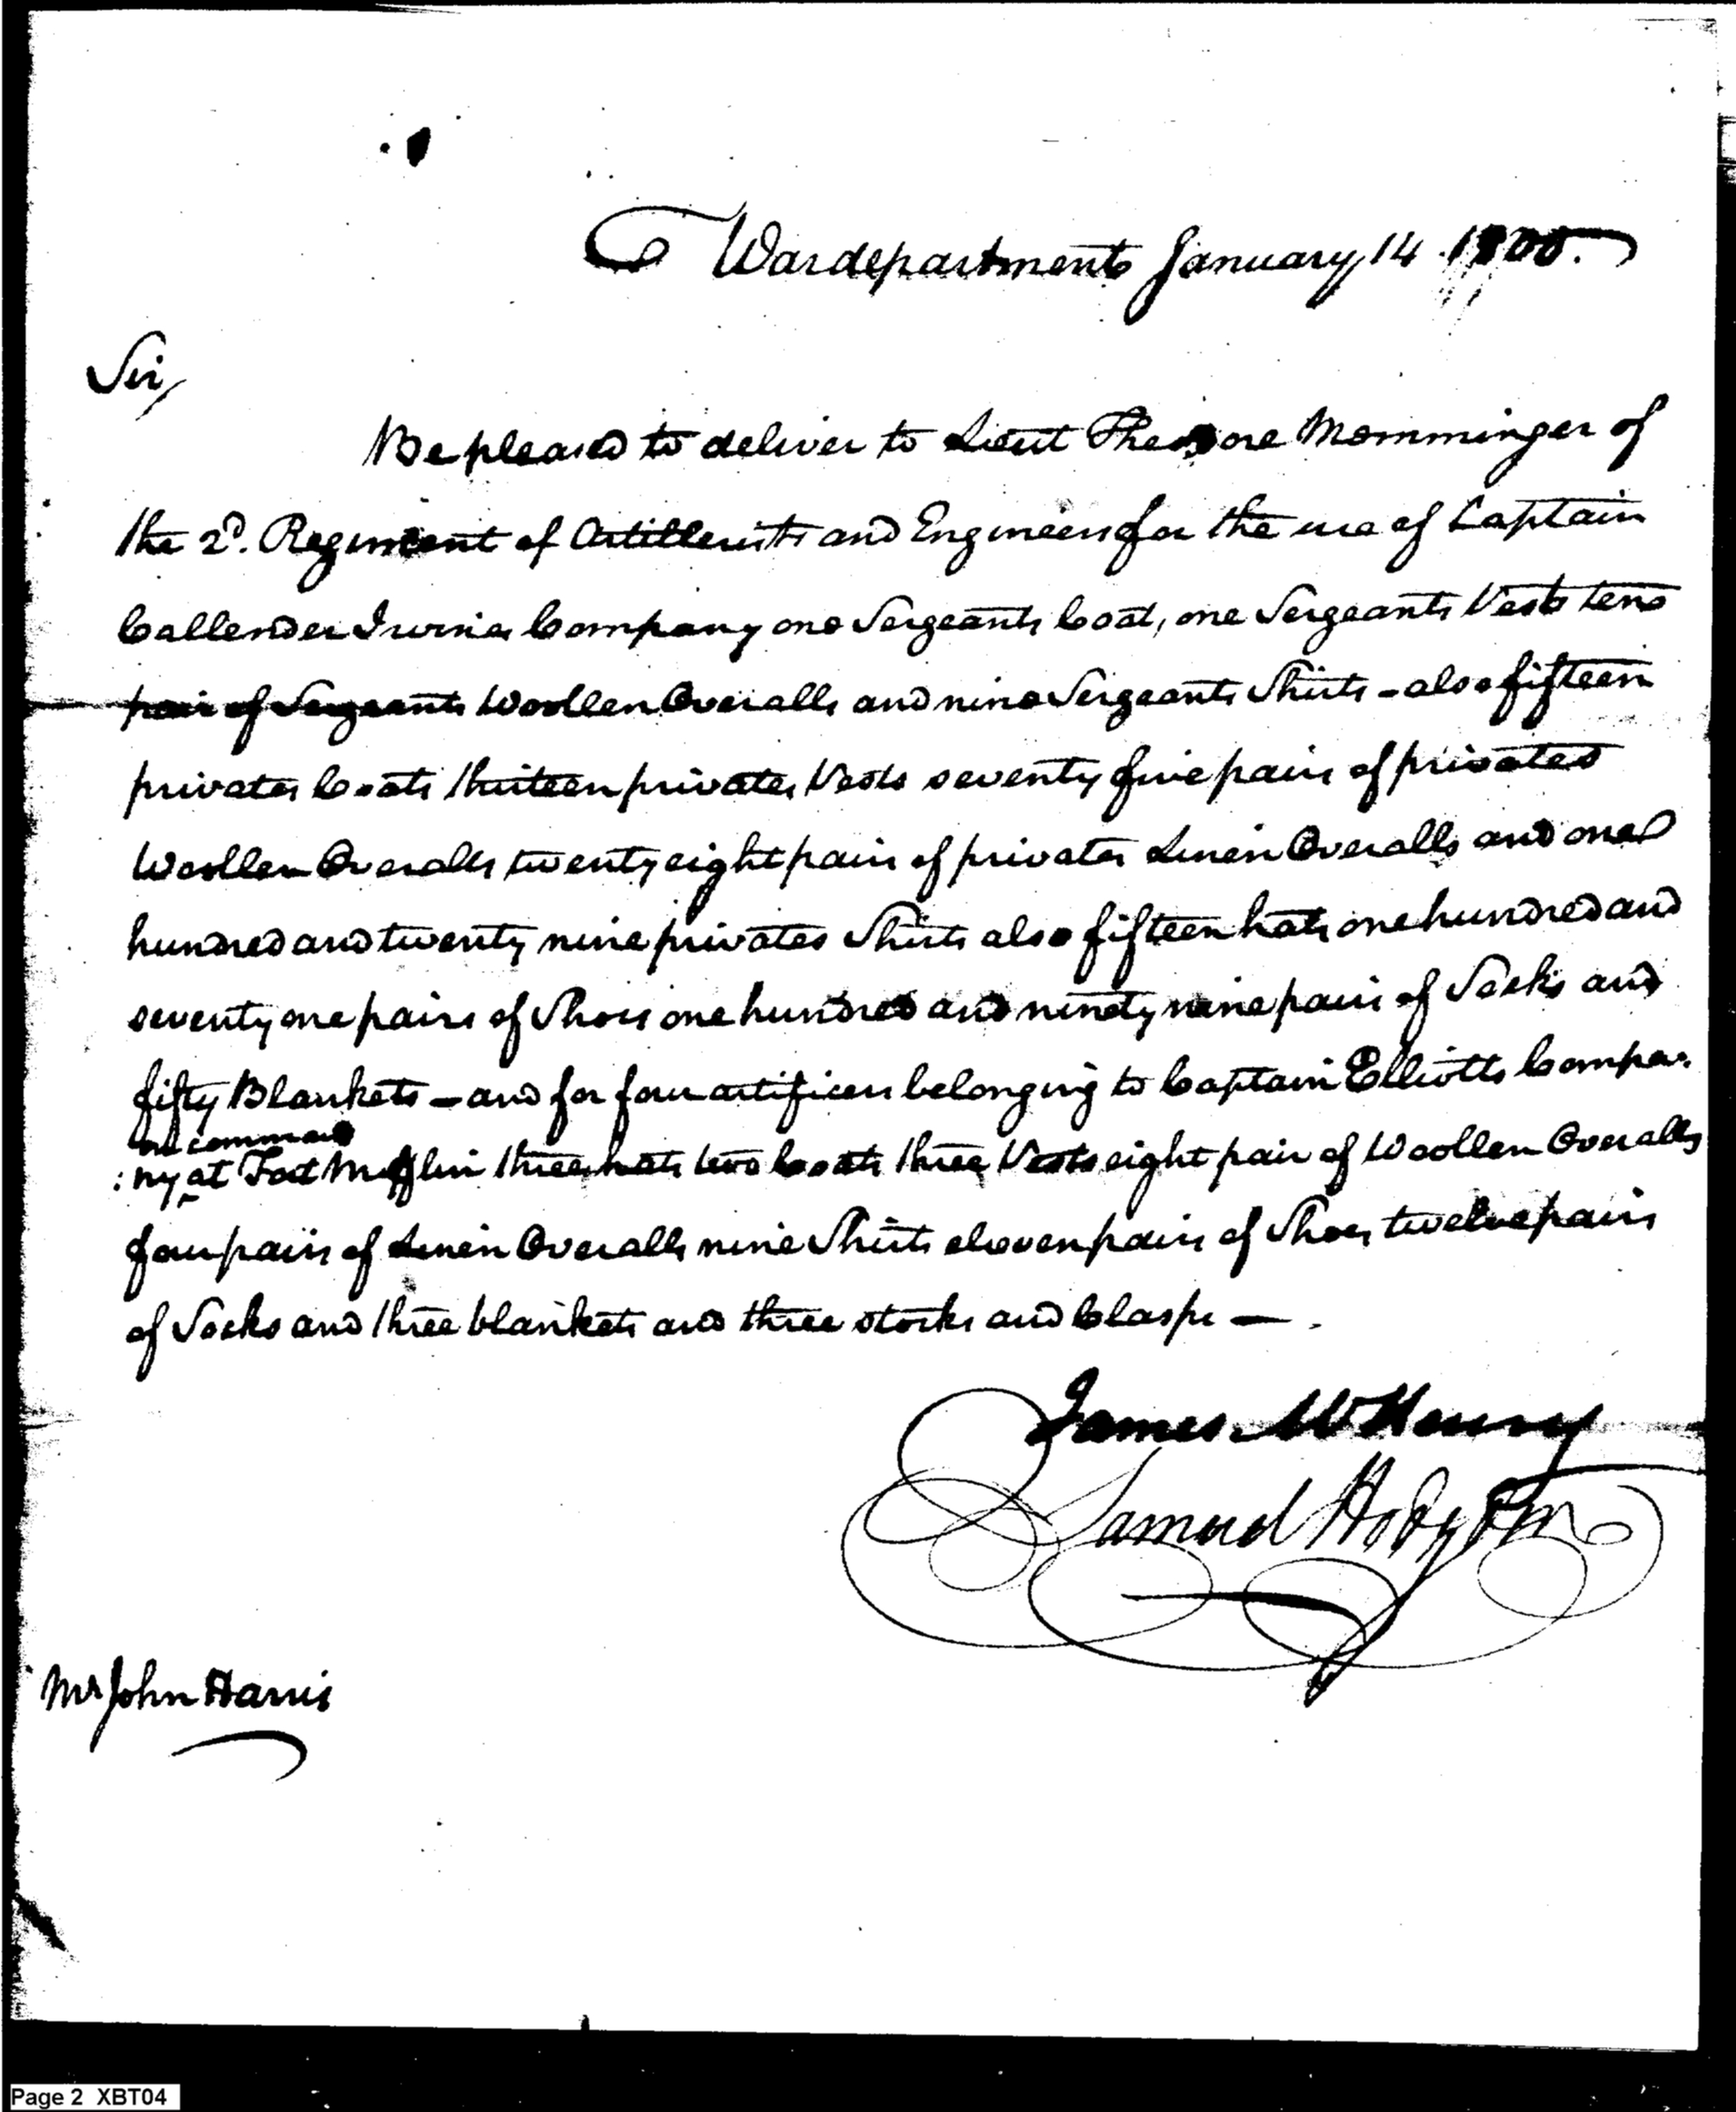 War department January 14. 1800.
Sir,
Be pleased to deliver to Lieut Theodore Memminger of
the 2d. Regiment of Artillerists and Engineers for the use of Captain
Callender Irvines Company one Sergeants Coat, one Sergeants Vest ten
pair of Sergeants Woollen Overalls and nine Sergeants Shirts - also fifteen
privates Coats thirteen privates Vests seventy five pairs of privates
Woollen Overalls twenty eight pairs of privates Linen Overalls and one
hundred and twenty nine privates Shirts also fifteen hats one hundred and
seventy one pairs of Shoes one hundred and ninety nine pairs of Socks and
fifty Blankets - and for four artificers belonging to Captain Elliotts Compa:
on command
:ny at Fort Mifflin three hats two Coats three Vests eight pair of Woollen Overalls
four pairs of Linen Overalls nine Shirts eleven pairs of Shoes twelve pairs
of Socks and three blankets and three stocks and Clasps —.
James McHenry
Samuel Hodgdon
Mr John Harris
Page 2 XBT04